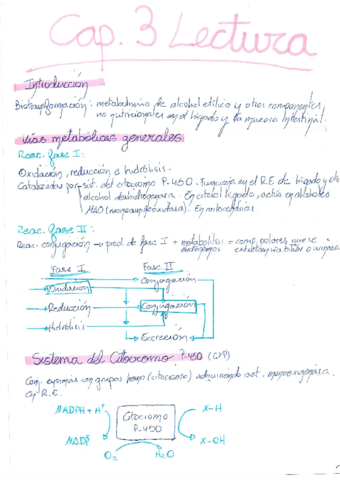 Cap. 3 Lectura
Introducción
Biotransformación: metabolismo de alcohol etílico y otros componentes
no nutricionales en el hígado y la mucosa intestinal.
vías metabólicas generales
Reac. fase I:
Oxidación, reducción e hidrólisis.
Catalizadas por sist. del citocromo P-450. Funciona en el R.E de hígado y de
alcohol deshidrogenasa. En citosol hígado, actúa en alcoholes
En mitocondrias
Reac. fase II:
Reac. conjugación → prod. de fase I + metabolitos = comp. polares que se
endógenos excretan vía biliar o urinaria
Fase I Fase II
Conjugación
Oxidación
Reducción Conjugación
Hidrólisis
Excreción
Sistema del Citocromo P-450 (CYP)
Conj. enzimas con grupos hemo (citocromo) adquiriendo act. monooxigenasa.
R.E.
NADPH + H⁺ Citocromo P-450 X-H
NADP X-OH
O₂ H₂O